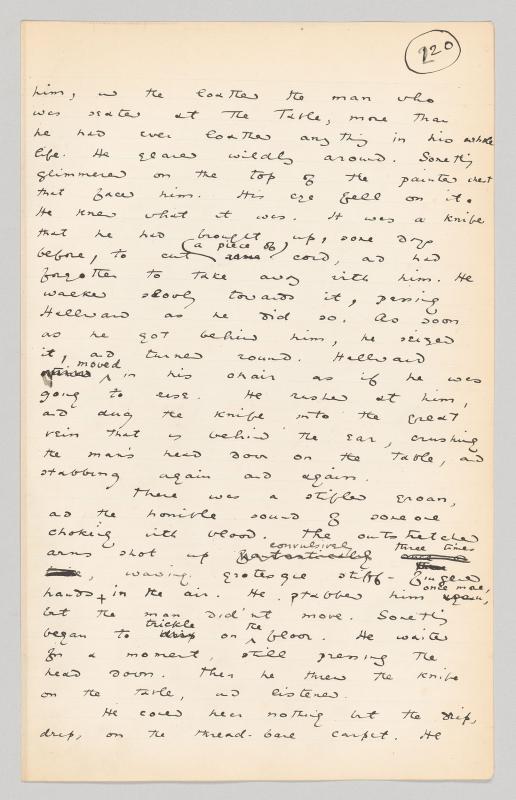 220
him, and he loathed the man who
was seated at the Table, more than
he had ever loathed anything in his whole
life. He glared wildly around. Something
glimmered on the top of the painted chest
that faced him. His eye fell on it.
He knew what it was. It was a knife
that he had brought up, some days
before, to cut (a piece of) some cord, and had
forgotten to take away with him. He
walked slowly towards it, passing
Hallward as he did so. As soon
as he got behind him, he seized
it, and turned round. Hallward
moved in his chair as if he was
going to rise. He rushed at him,
and dug the knife into the great
vein that is behind the ear, crushing
the man's head down on the table, and
stabbing again and again.
There was a stifled groan,
and the horrible sound of someone
choking with blood. The outstretched
arms shot up convulsively three times
, waving grotesque stiff-fingered
hands in the air. He stabbed him once more,
but the man did'nt move. Something
began to trickle on the floor. He waited
for a moment, still pressing the
head down. Then he threw the knife
on the table, and listened.
He could hear nothing but the drip,
drip, on the thread-bare carpet. He